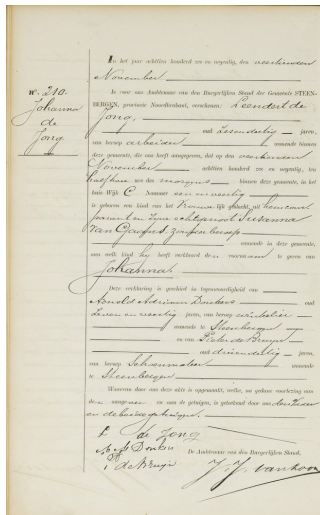 No. 210.
Johanna
de
Jong
In het jaar achttien honderd zes en negentig, den veertienden
November
is voor ons Ambtenaar van den Burgerlijken Stand der Gemeente STEEN-
BERGEN, provincie Noordbrabant, verschenen: Leendert de
Jong,
oud zesendertig jaren,
van beroep arbeider wonende binnen
deze gemeente, die ons heeft aangegeven, dat op den veertienden
November achttien honderd zes en negentig, ten
half ure des morgens binnen deze gemeente, in het
huis Wijk C Nommer een en veertig
is geboren een kind van het Vrouwelijk geslacht, uit hem comparant
en zijne echtgenoot Susanna
van zonder beroep
wonende in deze gemeente,
aan welk kind hij heeft verklaard den voornaam te geven van
Johanna.
Deze verklaring is geschied in tegenwoordigheid van
Arnold Adriaan Donkers oud
zeven en veertig jaren, van beroep
wonende te Steenbergen
en van Pieter de Bruijn
oud drieendertig jaren,
van beroep Schoenmaker wonende
te Steenbergen
Waarvan door ons deze akte is opgemaakt, welke, na gedane voorlezing aan
den aangever en aan de getuigen, is geteekend door ons, den Vader
en de beide getuigen.
L de Jong
A A Donkers
P de Bruijn
De Ambtenaar van den Burgerlijken Stand.
J. J. van Loon